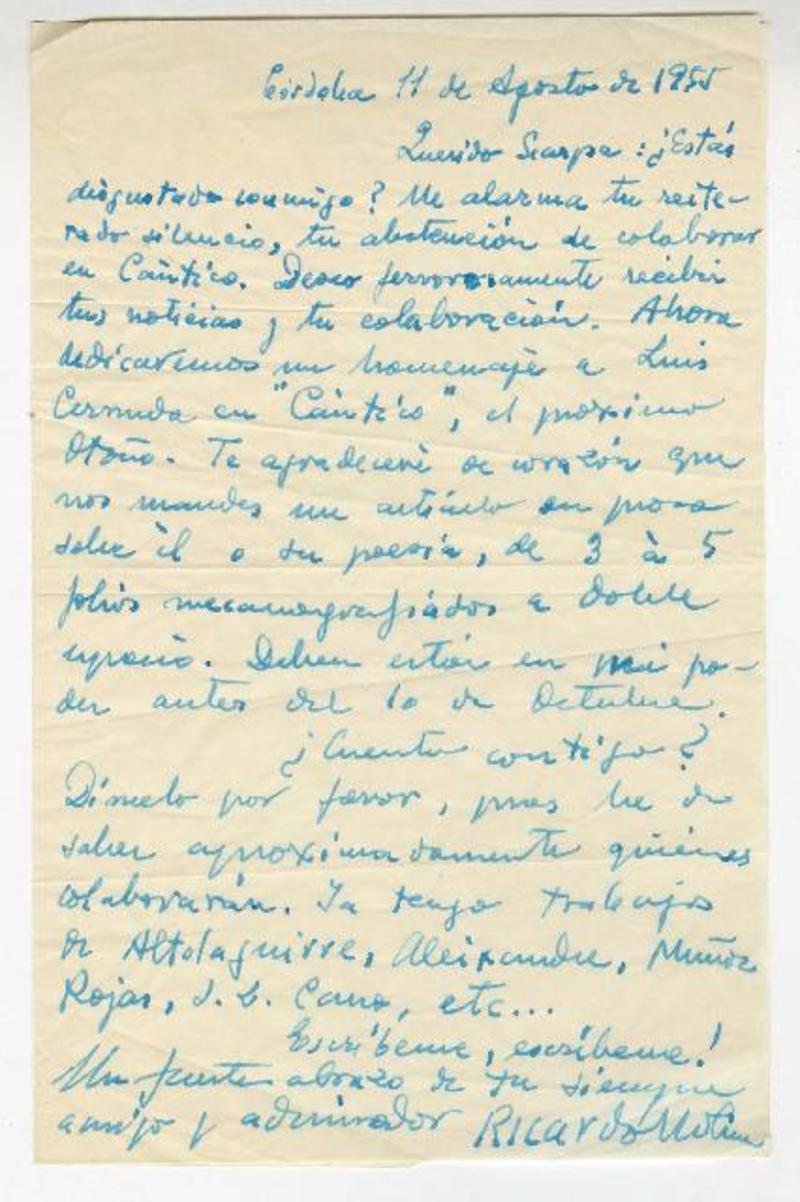 Córdoba 11 de Agosto de 1955
Querido Scarpa: ¿Estás
disgustado conmigo? Me alarma tu reite-
rado silencio, tu abstención de colaborar
en Cántico. Deseo fervorosamente recibir
tus noticias y tu colaboración. Ahora
dedicaremos un homenaje a Luis
Cernuda en "Cántico", el próximo
Otoño. Te agradeceré de corazón que
nos mandes un artículo en prosa
sobre él o su poesía, de 3 à 5
folios mecanografiados a doble
espacio. Deben estar en mi po-
der antes del 10 de Octubre.
¿Cuento contigo?
Dímelo por favor, pues he de
saber aproximadamente quiénes
colaborarán. Ya tengo trabajos
de Altolaguirre, Aleixandre, Muñoz
Rojas, J. L. Cano, etc...
Escríbeme, escríbeme!
Un fuerte abrazo de tu siempre
amigo y admirador Ricardo Molina